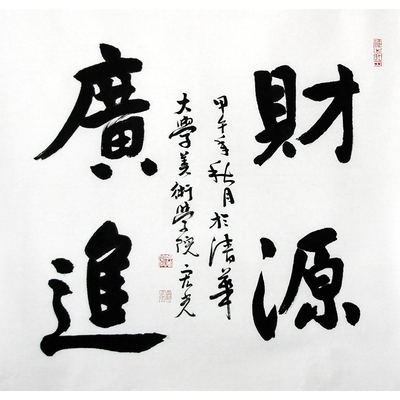 財源
廣進
甲午年秋月於清華
大學美術學院宏光